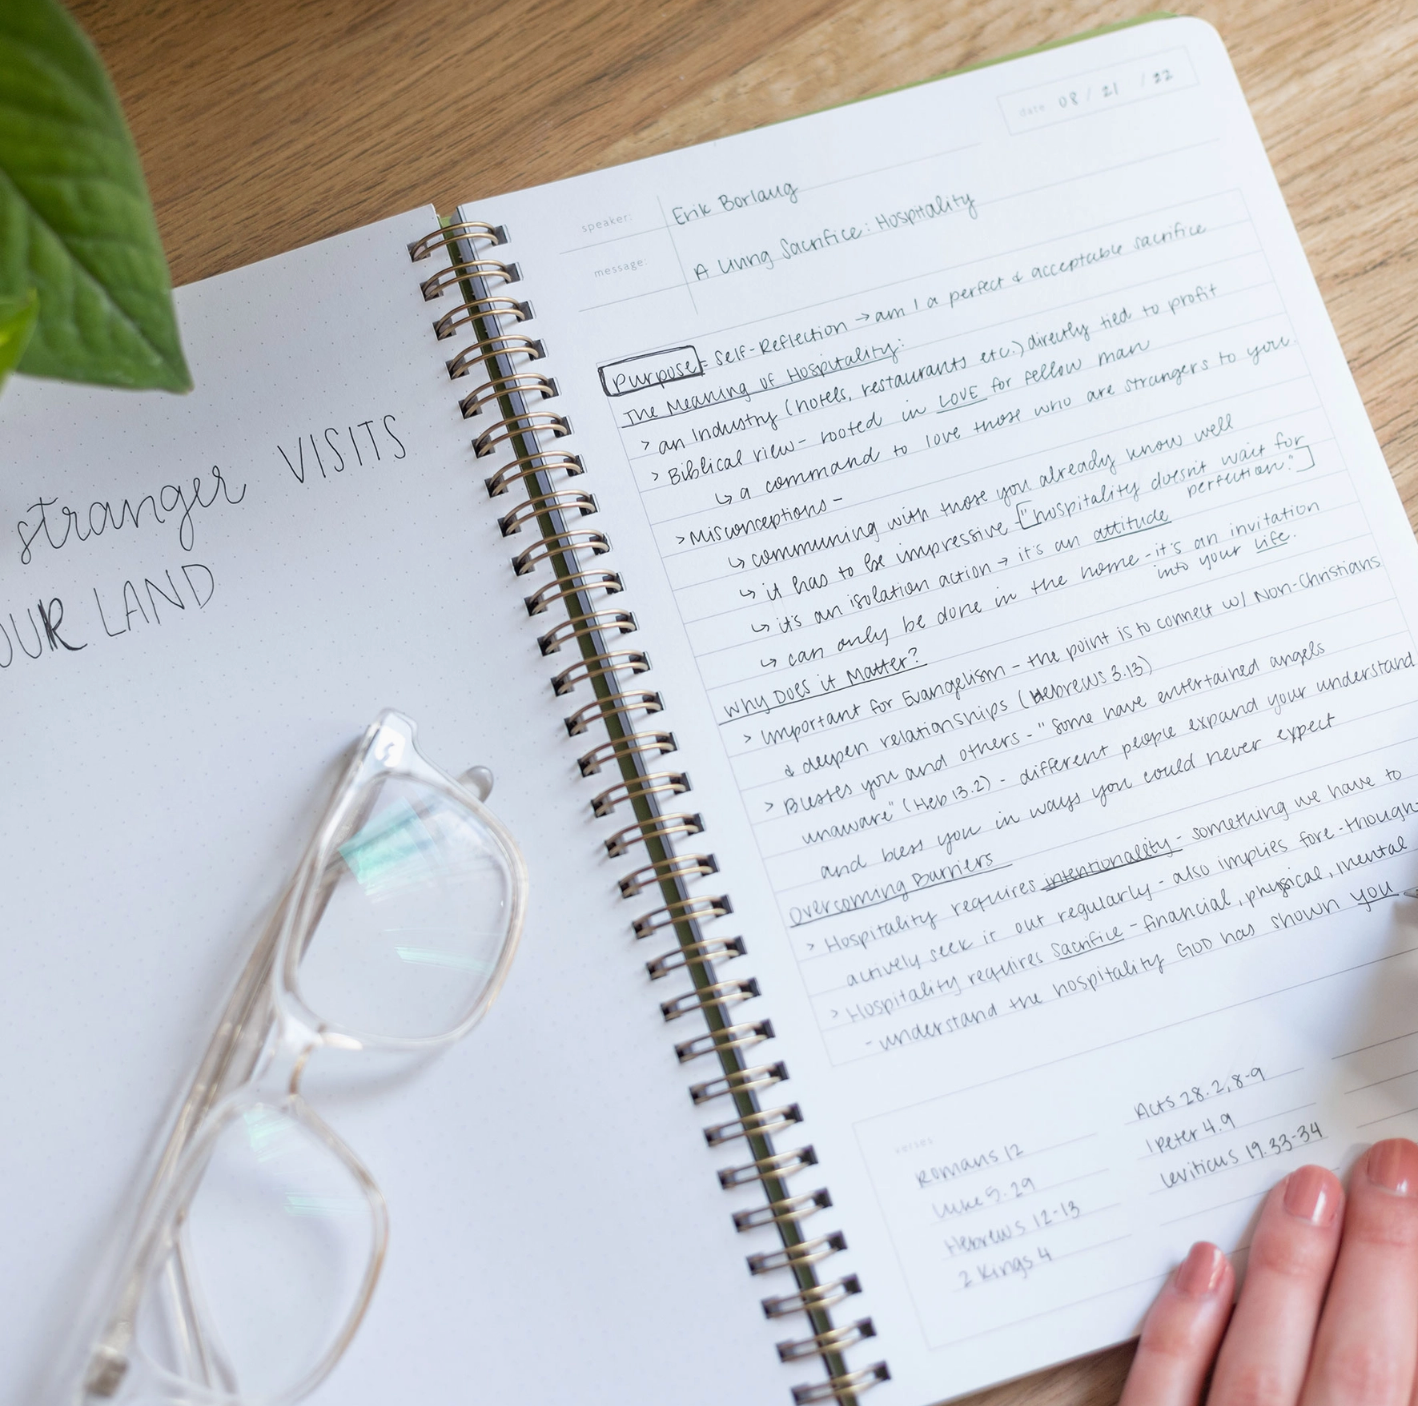 stranger VISITS
OUR LAND
date: 08 / 21 / 22
speaker: Erik Borlaug
message: A Living Sacrifice: Hospitality
Purpose = Self-Reflection → am I a perfect & acceptable sacrifice
The Meaning of Hospitality:
> an Industry (hotels, restaurants etc.) directly tied to profit
> Biblical view - rooted in LOVE for fellow man
↳ a command to love those who are strangers to you.
> Misconceptions -
↳ communing with those you already know well
↳ it has to be impressive - ["hospitality doesn't wait for
perfection."]
↳ it's an isolation action → it's an attitude
↳ can only be done in the home - it's an invitation
into your life.
Why Does it Matter?
> Important for Evangelism - the point is to connect w/ Non-Christians
& deepen relationships (Hebrews 3.13)
> Blesses you and others - "Some have entertained angels
unaware" (Heb 13.2) - different people expand your understand
and bless you in ways you could never expect
Overcoming Barriers
> Hospitality requires intentionality - something we have to
actively seek it out regularly - also implies fore-though
> Hospitality requires Sacrifice - financial, physical, mental
- understand the hospitality GOD has shown you
verses
Romans 12
Luke 5.29
Hebrews 12-13
2 Kings 4
Acts 28.2, 8-9
1 Peter 4.9
Leviticus 19.33-34